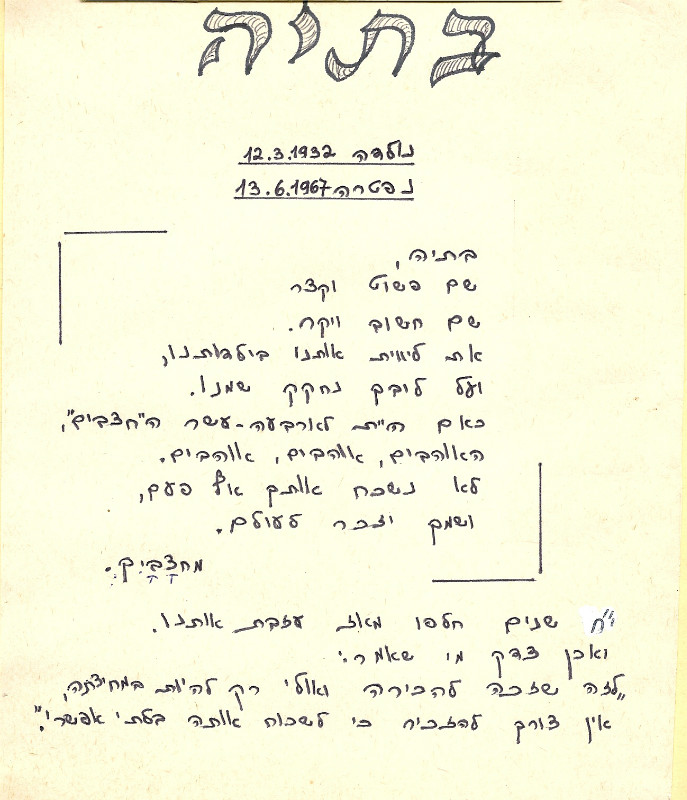 בתיה
נולדה 12.3.1932
נפטרה 13.6.1967
בתיה,
שם פשוט וקצר
שם חשוב ויקר.
את ליוית אותנו בילדותנו,
ועל לובן נחקק שמנו.
כאם היית לארבעה-עשר ה"חצבים",
האוהבים, אוהבים, אוהבים.
לא נשכח אותך אף פעם,
ושמך יזכר לעולם.
מחצביך.
י"ח שנים חלפו מאז עזבת אותנו.
ואכן צדק מי שאמר:
"לזה שזכה להכירה ואולי רק להיות במחיצתה,
אין צורך להזכיר כי לשכוח אותה בלתי אפשרי".